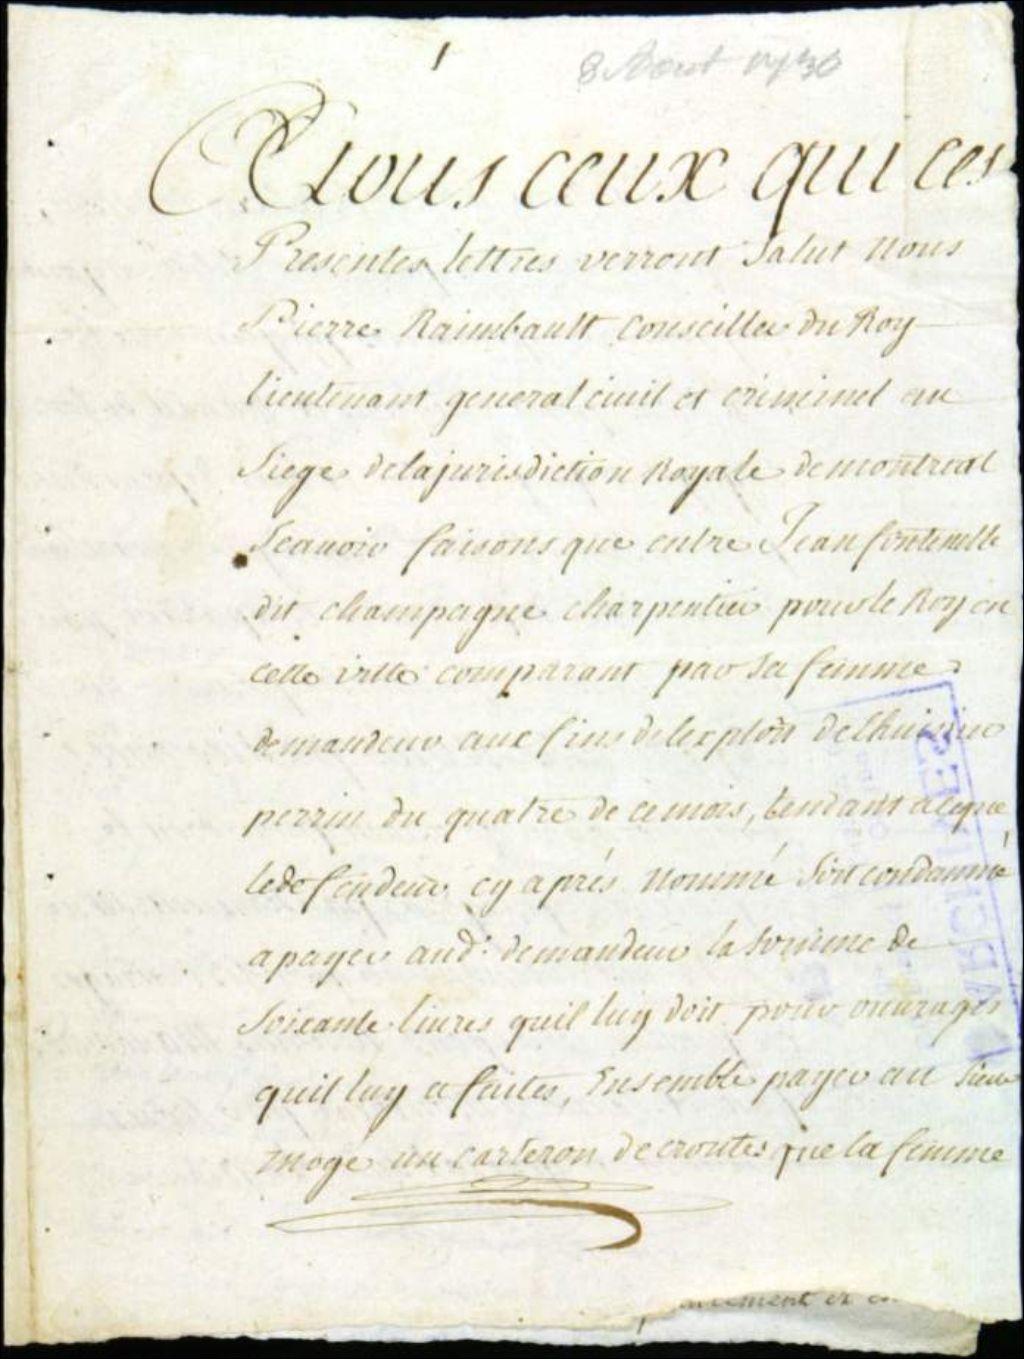 8 Aout 1736
A Tous ceux qui ces
Presentes lettres verront Salut Nous
Pierre Raimbault Conseiller du Roy
lieutenant general civil et criminel au
Siege de la jurisdiction Royale de montreal
Scauoir faisons que entre Jean fontenelle
dit champagne charpentier pour le Roy en
cette ville comparant par sa femme
demandeur aux fins de lexploit de l'huissier
perrin du quatre de ce mois, tendant a ce que
le deffendeur cy aprés nommé Soit condamné
a payer aud: demandeur la somme de
Soixante liures quil luy doit pour ouurages
quil luy a faites, Ensemble payer au Sieur
moge un carteron de croutes que la femme
ARCHIVES